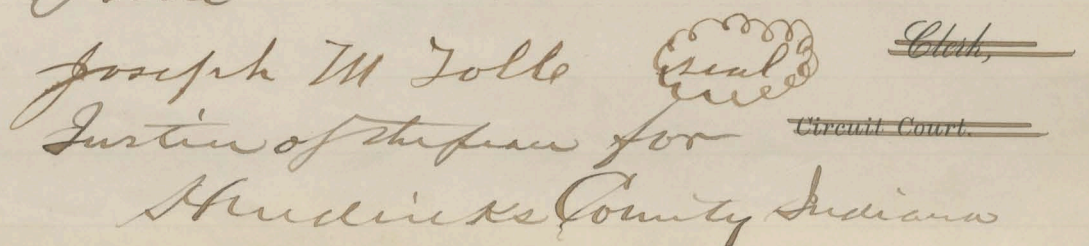 Joseph M Tolle seal Clerk,
Justice of the peace for Circuit Court.
Hendricks County Indiana